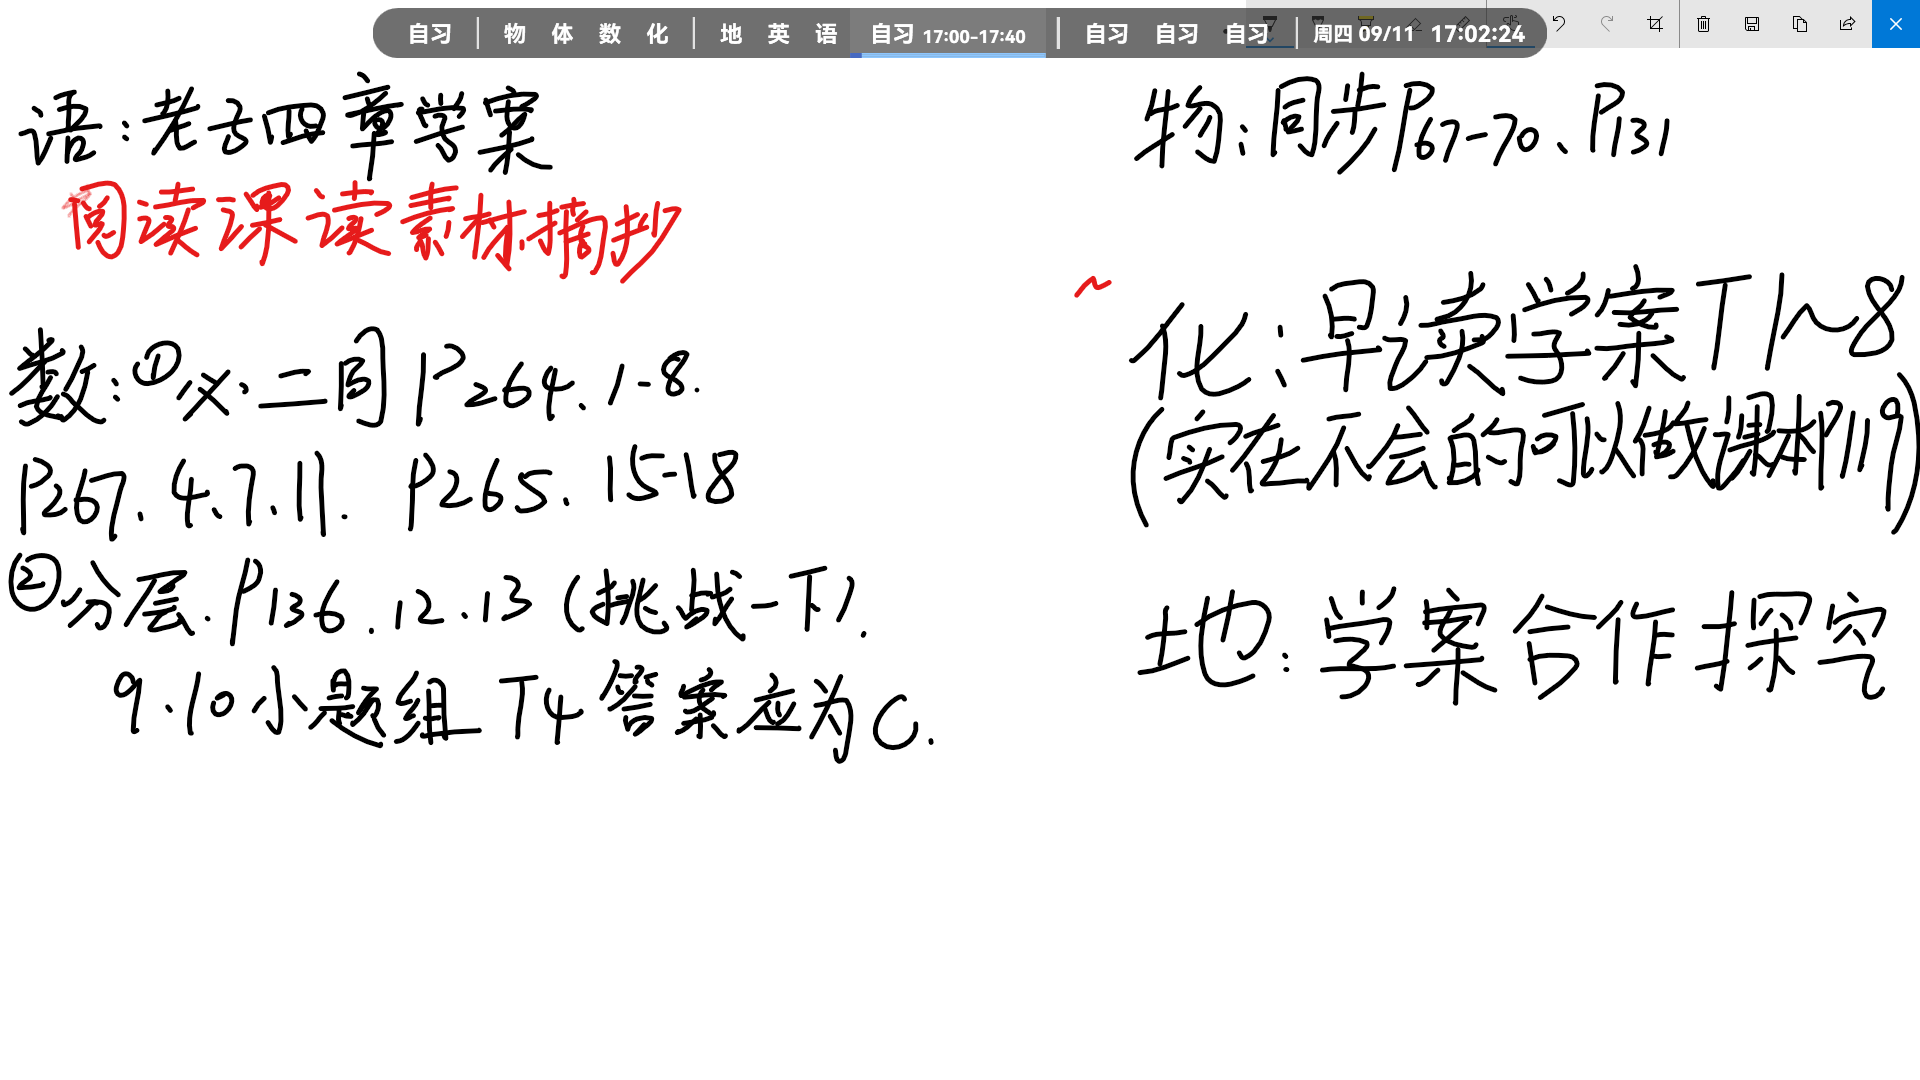 自习 | 物 体 数 化 | 地 英 语 自习 17:00-17:40 | 自习 自习 自习 | 周四 09/11 17:02:24
语:老子四章学案
阅读课读素材摘抄
数:①必二同 P264. 1-8.
P267. 4. 7. 11. P265. 15-18
②分层. P136. 12. 13 (挑战一下).
9.10小题组 T4 答案应为C.
物:同步P67-70、P131
化:早读学案T1~8
(实在不会的可以做课本P119)
地:学案合作探究